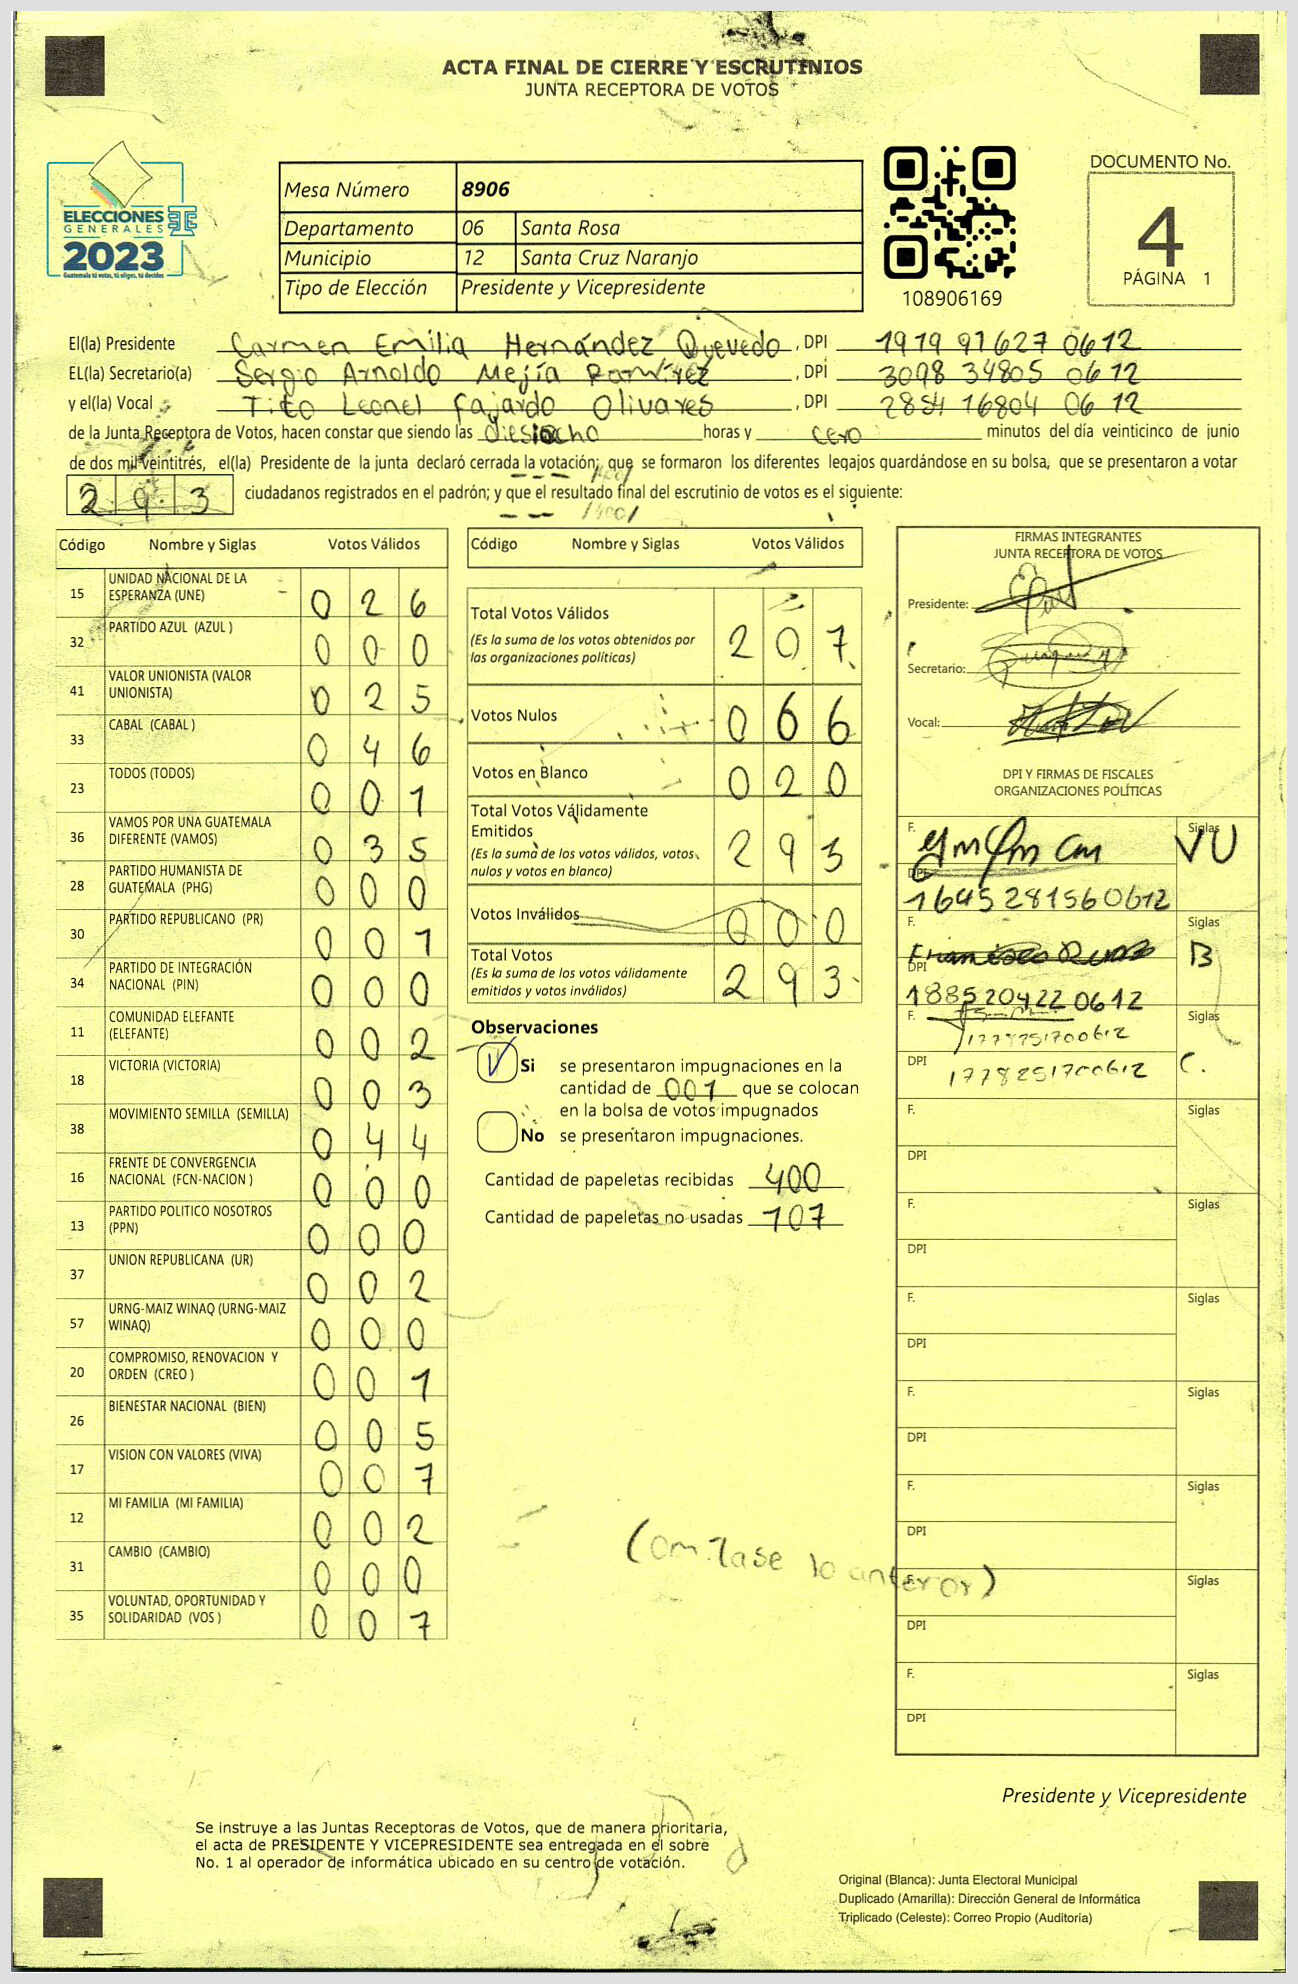 ACTA FINAL DE CIERRE Y ESCRUTINIOS
JUNTA RECEPTORA DE VOTOS
ELECCIONES
GENERALES
2023
Guatemala tú votas, tú eliges, tú decides
Mesa Número 8906
Departamento 06 Santa Rosa
Municipio 12 Santa Cruz Naranjo
Tipo de Elección Presidente y Vicepresidente
108906169
DOCUMENTO No.
4
PÁGINA 1
El(la) Presidente Carmen Emilia Hernández Quevedo, DPI 1919 91627 0612
EL(la) Secretario(a) Sergio Arnoldo Mejía Ramírez, DPI 3098 34805 0612
y el(la) Vocal Tito Leonel Fajardo Olivares, DPI 2854 16804 0612
de la Junta Receptora de Votos, hacen constar que siendo las diesiocho horas y cero minutos del día veinticinco de junio
de dos mil veintitrés, el(la) Presidente de la junta declaró cerrada la votación; que se formaron los diferentes legajos guardándose en su bolsa, que se presentaron a votar
293 ciudadanos registrados en el padrón; y que el resultado final del escrutinio de votos es el siguiente:
Código Nombre y Siglas Votos Válidos
15 UNIDAD NACIONAL DE LA ESPERANZA (UNE) 026
32 PARTIDO AZUL (AZUL ) 000
41 VALOR UNIONISTA (VALOR UNIONISTA) 025
33 CABAL (CABAL ) 046
23 TODOS (TODOS) 001
36 VAMOS POR UNA GUATEMALA DIFERENTE (VAMOS) 035
28 PARTIDO HUMANISTA DE GUATEMALA (PHG) 000
30 PARTIDO REPUBLICANO (PR) 001
34 PARTIDO DE INTEGRACIÓN NACIONAL (PIN) 000
11 COMUNIDAD ELEFANTE (ELEFANTE) 002
18 VICTORIA (VICTORIA) 003
38 MOVIMIENTO SEMILLA (SEMILLA) 044
16 FRENTE DE CONVERGENCIA NACIONAL (FCN-NACION ) 000
13 PARTIDO POLITICO NOSOTROS (PPN) 000
37 UNION REPUBLICANA (UR) 002
57 URNG-MAIZ WINAQ (URNG-MAIZ WINAQ) 000
20 COMPROMISO, RENOVACION Y ORDEN (CREO ) 001
26 BIENESTAR NACIONAL (BIEN) 005
17 VISION CON VALORES (VIVA) 007
12 MI FAMILIA (MI FAMILIA) 002
31 CAMBIO (CAMBIO) 000
35 VOLUNTAD, OPORTUNIDAD Y SOLIDARIDAD (VOS ) 007
Código Nombre y Siglas Votos Válidos
Total Votos Válidos 207
(Es la suma de los votos obtenidos por
las organizaciones políticas)
Votos Nulos 066
Votos en Blanco 020
Total Votos Válidamente
Emitidos 293
(Es la suma de los votos válidos, votos
nulos y votos en blanco)
Votos Inválidos 000
Total Votos 293
(Es la suma de los votos válidamente
emitidos y votos inválidos)
Observaciones
V Si se presentaron impugnaciones en la
cantidad de 001 que se colocan
en la bolsa de votos impugnados
No se presentaron impugnaciones.
Cantidad de papeletas recibidas 400
Cantidad de papeletas no usadas 107
(Omitase lo anterior)
FIRMAS INTEGRANTES
JUNTA RECEPTORA DE VOTOS
Presidente:
Secretario:
Vocal:
DPI Y FIRMAS DE FISCALES
ORGANIZACIONES POLÍTICAS
F. Siglas VU
DPI 1645281560612
F. Siglas B
DPI 188520422 0612
F. 1778251700612 Siglas
DPI 1778251700612 C.
F. Siglas
DPI
F. Siglas
DPI
F. Siglas
DPI
F. Siglas
DPI
F. Siglas
DPI
F. Siglas
DPI
F. Siglas
DPI
Presidente y Vicepresidente
Se instruye a las Juntas Receptoras de Votos, que de manera prioritaria,
el acta de PRESIDENTE Y VICEPRESIDENTE sea entregada en el sobre
No. 1 al operador de informática ubicado en su centro de votación.
Original (Blanca): Junta Electoral Municipal
Duplicado (Amarilla): Dirección General de Informática
Triplicado (Celeste): Correo Propio (Auditoría)